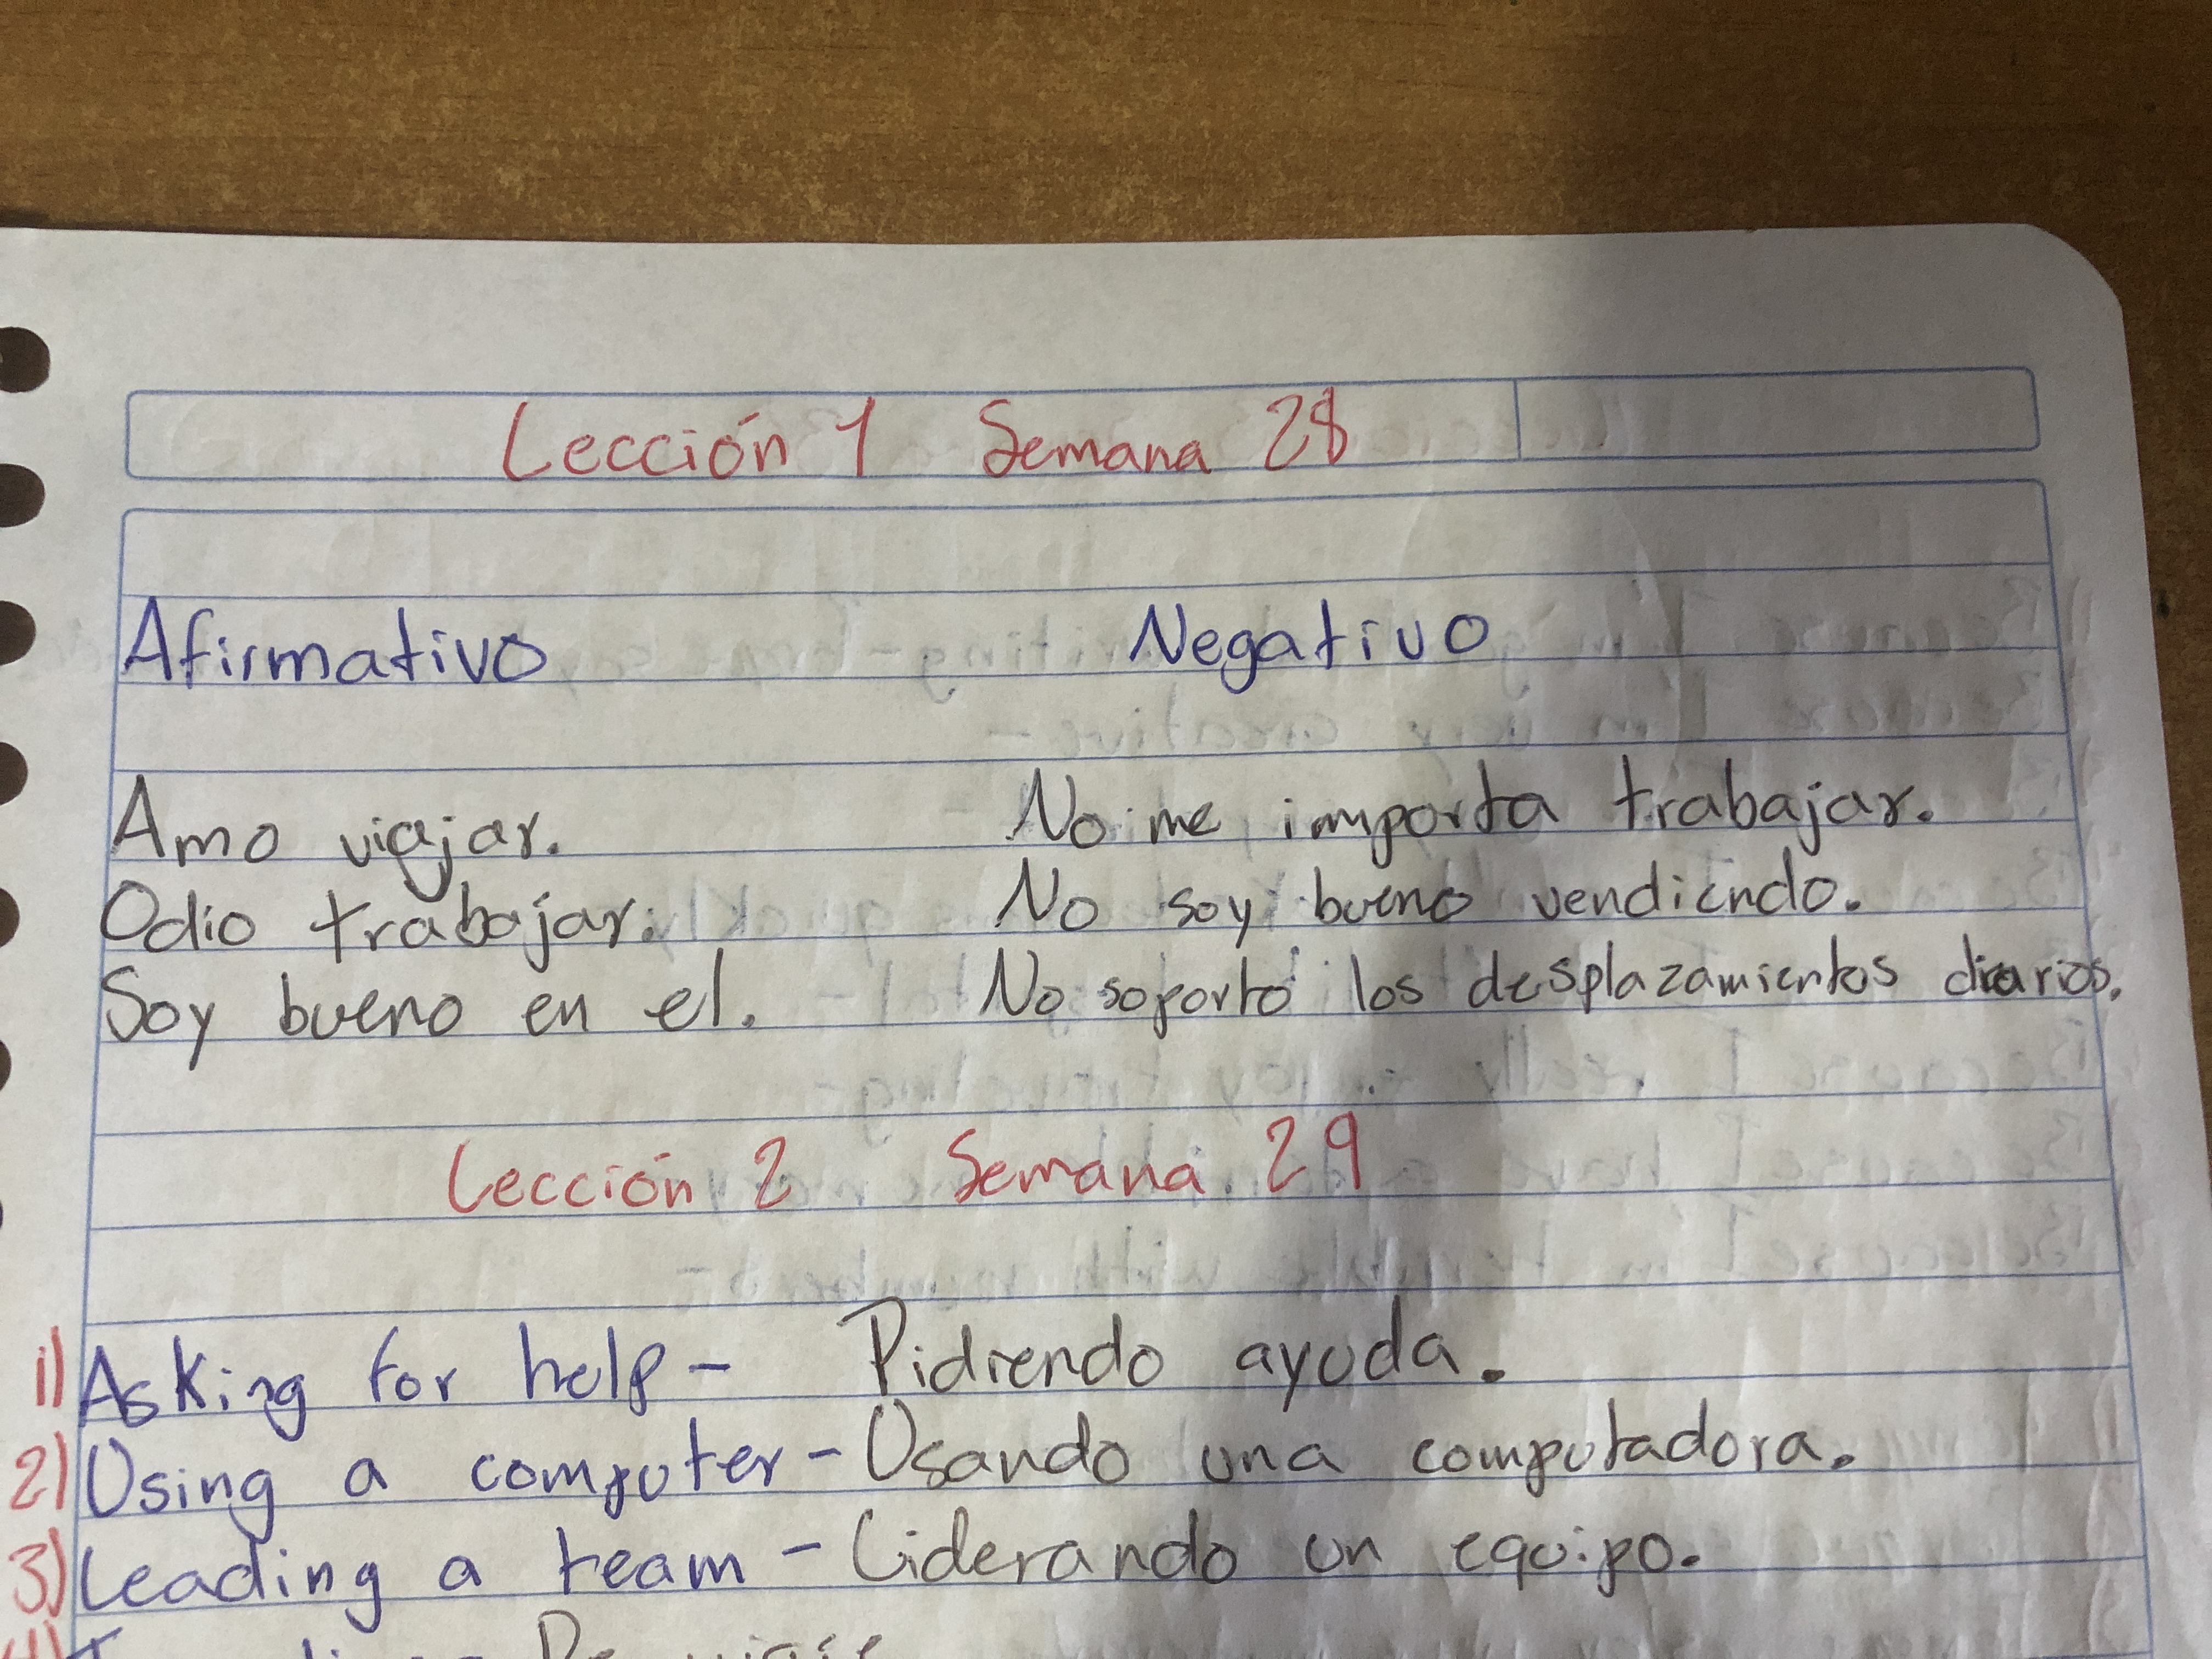 Lección 1 Semana 28
Afirmativo Negativo
Amo viajar. No me importa trabajar.
Odio trabajar. No soy bueno vendiendo.
Soy bueno en el. No soporto los desplazamientos diarios.
Lección 2 Semana 29
1) Asking for help - Pidiendo ayuda.
2) Using a computer - Usando una computadora.
3) Leading a team - Liderando un equipo.
4)